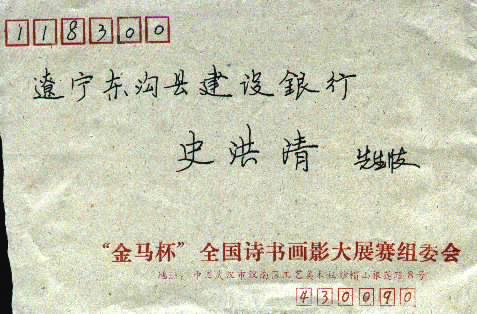 118300
遼宁东沟县建设銀行
史洪清 先生收
“金马杯”全国诗书画影大展赛组委会
地址：中国武汉市汉南区工艺美术社纱帽山银莲路8号
430090